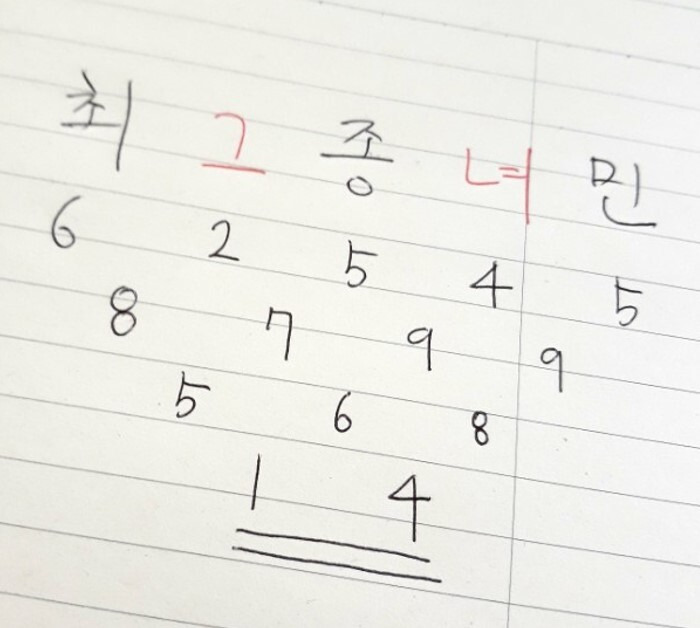 최 그 종 너 민
6 2 5 4 5
8 7 9 9
5 6 8
1 4